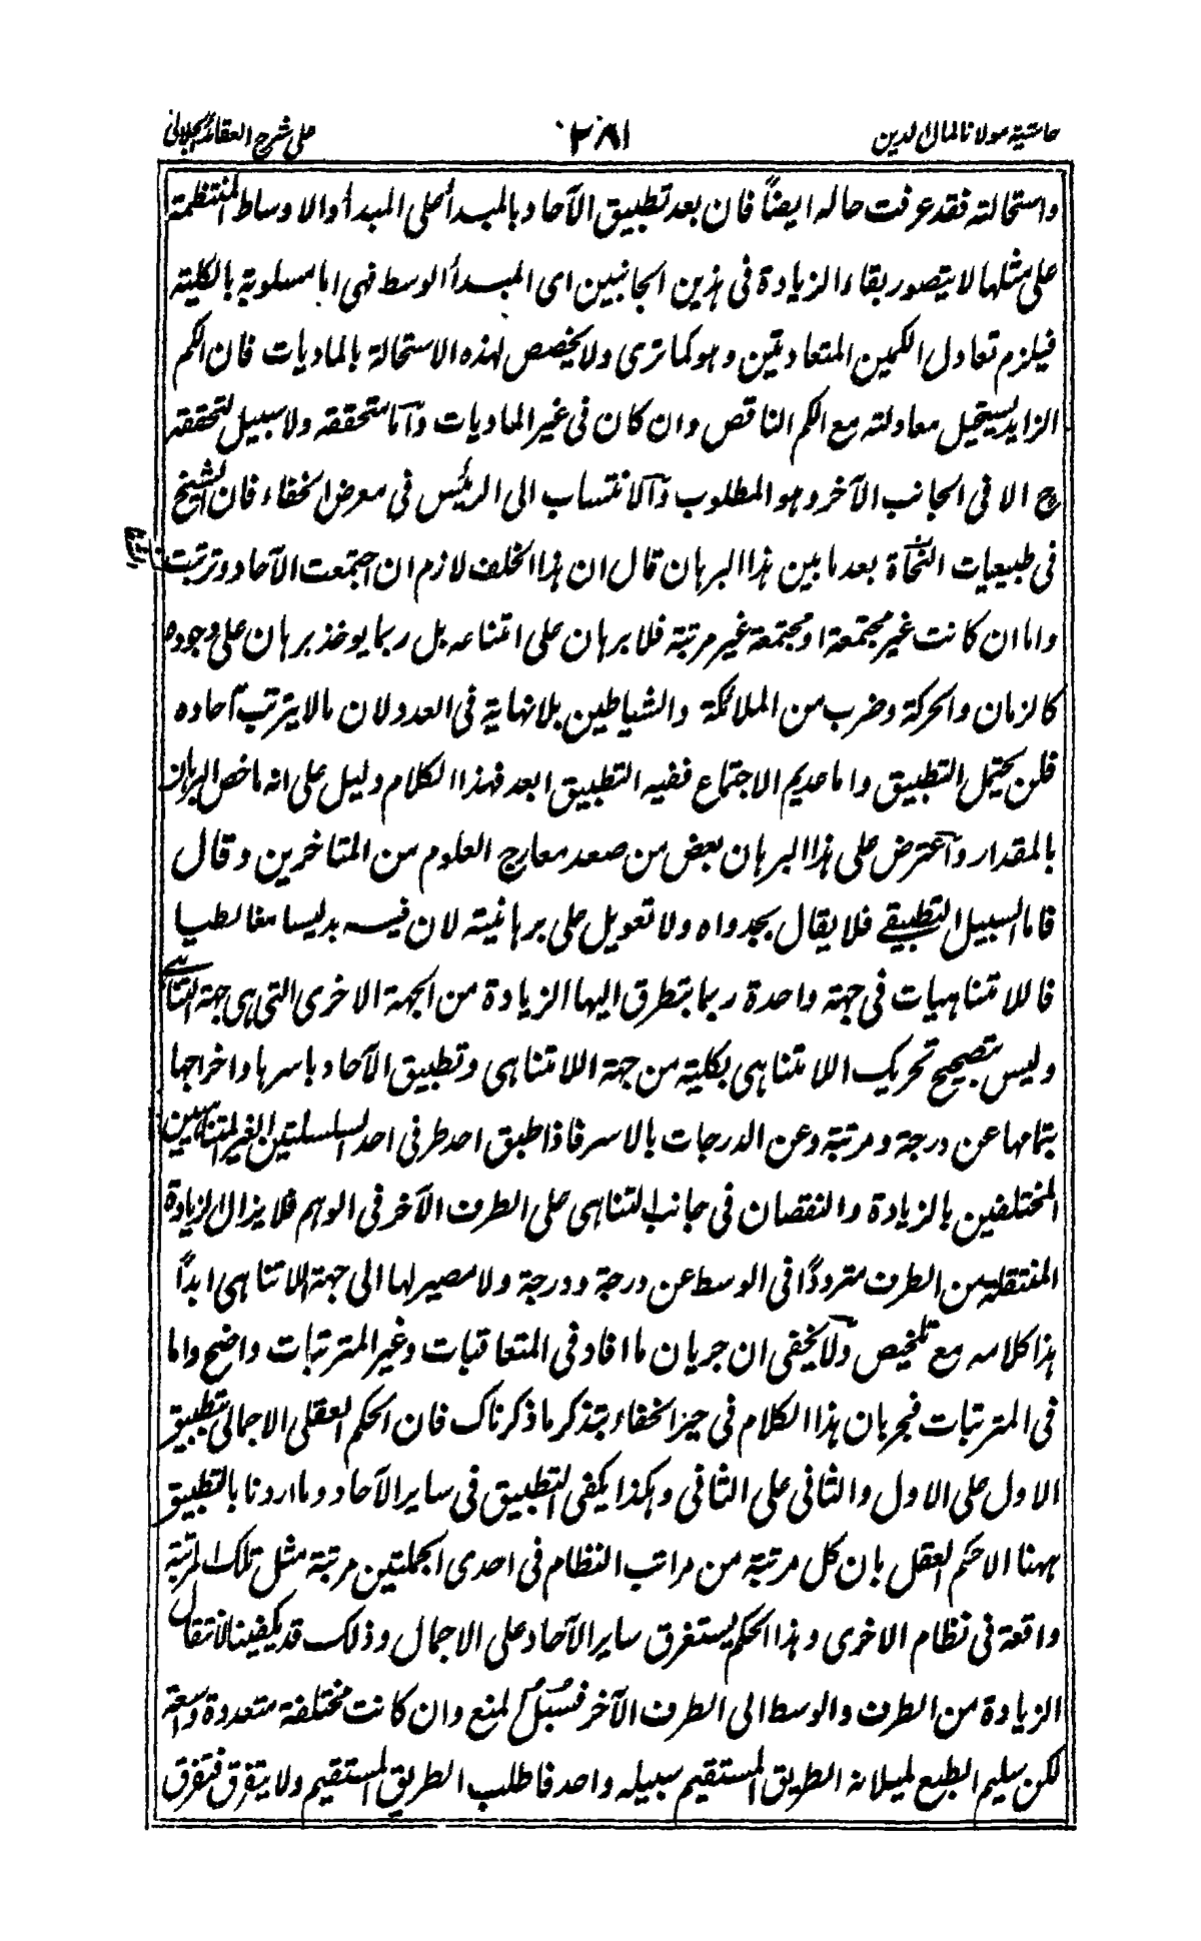 حاشية مولانا كمال الدين ٢٨١ على شرح العقائد الجلالى
واستحالته فقد عرفت حاله ايضاً فان بعد تطبيق الآحاد بالمبدأ على المبدأ والاوساط المنتظمة
على مثلها لا يتصور بقاء الزيادة فى هذين الجانبين اى المبدأ الوسط فهى اما مسلوبة بالكلية
فيلزم تعادل الكمين المتعادتين وهو كما ترى ولا يخصص لهذه الاستحالة بالماديات فان الكم
الزايد يستحيل معادلته مع الكم الناقص وان كان فى غير الماديات وآما متحققة ولا سبيل لتحققة
ح الا فى الجانب الآخر وهو المطلوب وآلانتساب الى الرئيس فى معرض الخفاء فان الشيخ
فى طبيعيات النجاة بعد ما بين هذا البرهان قال ان هذا الخلف لازم ان اجتمعت الآحاد وترتبت
واما ان كانت غير مجتمعة او مجتمعة غير مرتبة فلا برهان على امتناعه بل ربما يوخذ برهان على وجوده
كالزمان والحركة وضرب من الملائكة والشياطين بلا نهاية فى العدد لان ما لا يترتب آحاده
فلن يحتمل التطبيق واما عديم الاجتماع ففيه التطبيق ابعد فهذا الكلام دليل على انه ما خص البرهان
بالمقدار وآعترض على هذا البرهان بعض من صعد معارج العلوم من المتاخرين وقال
فاما السبيل التطبيقى فلا يقال بجدواه ولا تعويل على برهانيته لان فيه بدليسا مغالطيا
فاللامتناهيات فى جهة واحدة ربما يتطرق اليها الزيادة من الجهة الاخرى التى هى جهة التناهى
وليس يتصحح تحريك اللامتناهى بكلية من جهة اللاتناهى وتطبيق الآحاد باسرها واخراجها
بتمامها عن درجة ومرتبة وعن الدرجات بالاسر فاذا طبق احد طرفى احد السلسلتين الغير المتناهيين
المختلفين بالزيادة والنقصان فى جانب التناهى على الطرف الآخر فى الوهم فلا يزال الزيادة
المنتقلة من الطرف مترودًا فى الوسط عن درجة ودرجة ولا مصير لها الى جهة اللاتناهى ابداً
هذا كلامه مع تلخيص ولآ يخفى ان جريان ما افاد فى المتعاقبات وغير المترتبات واضح واما
فى المترتبات فجريان هذا الكلام فى حيز الخفاء بتذكر ما ذكرناك فان الحكم العقلى الاجمالى بتطبيق
الاول على الاول والثانى على الثانى وهكذا يكفى التطبيق فى ساير الآحاد وما اردنا بالتطبيق
ههنا الا حكم العقل بان كل مرتبة من مراتب النظام فى احدى الجملتين مرتبة مثل تلك المرتبة
واقعة فى نظام الاخرى وهذا الحكم يستغرق ساير الآحاد على الاجمال وذلك قد يكفينا لانتقال
الزيادة من الطرف والوسط الى الطرف الآخر فسبل المنع وان كانت مختلفة متعددة واسعة
لكن سليم الطبع لميلانه الطريق المستقيم سبيله واحد فاطلب الطريق المستقيم ولا يتفرق فتفرق